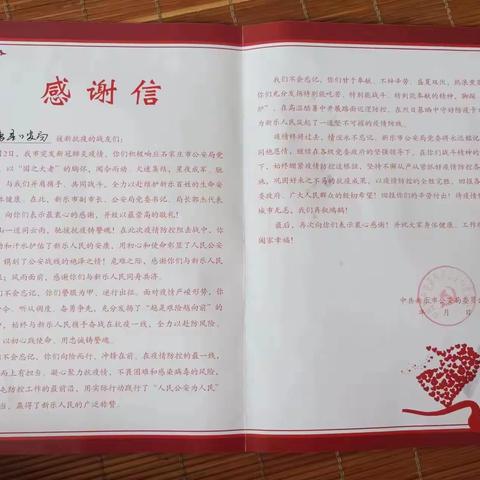 感谢信
援新抗疫的战友们：
2日，我市突发新冠肺炎疫情。你们积极响应石家庄市公安局党
以“国之大者”的胸怀，闻令而动、火速集结，星夜驰军、驰
与我们并肩携手、共同战斗，全力以赴维护新乐百姓的生命安
健康。在此，新乐市副市长、公安局党委书记、局长郭杰代表
向你们表示最衷心的感谢，并致以最崇高的敬礼！
山一道同云雨，驰援抗疫铸警魂！在此次疫情防控阻击战中，你
动和汗水护佑了新乐人民的安康，用初心和使命彰显了人民公安
镌刻了公安战线的绝泽之情！危难之际，感谢你们与新乐人民
；风雨面前，感谢你们与新乐人民同舟共济。
们不会忘记，你们警服为甲、逆行出征。面对疫情严峻形势，你
命令、听从调度、奋勇争先，充分发扬了“越是艰险越向前”的
，始终与新乐人民携手奋战在抗疫一线，全力以赴防风险、
以初心践使命、用忠诚铸警魂。
们不会忘记，你们向险而行、冲锋在前。在疫情防控的最一线，
而上有担当、凝心聚力抗疫情，不畏困难和感染病毒的风险，
防控工作的最前沿，用实际行动践行了“人民公安为人民”
当，赢得了新乐人民的广泛称赞。
我们不会忘记，你们甘于奉献、不辞辛劳。盛夏双伏，抗
你们充分发扬特别能吃苦、特别能战斗、特别能奉献的精神，脚踩
护”，在高温酷暑中开展路面巡逻防控，在烈日暮晒中守好防疫卡
为新乐人民筑起了一道坚不可摧的疫情防线。
疫情终将过去，情谊永不忘记。新乐市公安局党委将永远铭记
同袍恩情，继续在各级党委政府的坚强领导下，在你们战斗精神的
下，始终绷紧疫情防控这根弦，坚持不懈从严从紧抓好疫情防控各
地，巩固好来之不易的抗疫成果，以疫情防控的全胜完胜，回报各
委政府、广大人民群众的殷切希望！回报你们的辛劳付出！待疫情
城市无恙，我们再叙硝烟！
最后，再次向你们表示衷心感谢！并祝大家身体健康、工作
阖家幸福！
中共新乐市公安局委员会
年 月 日